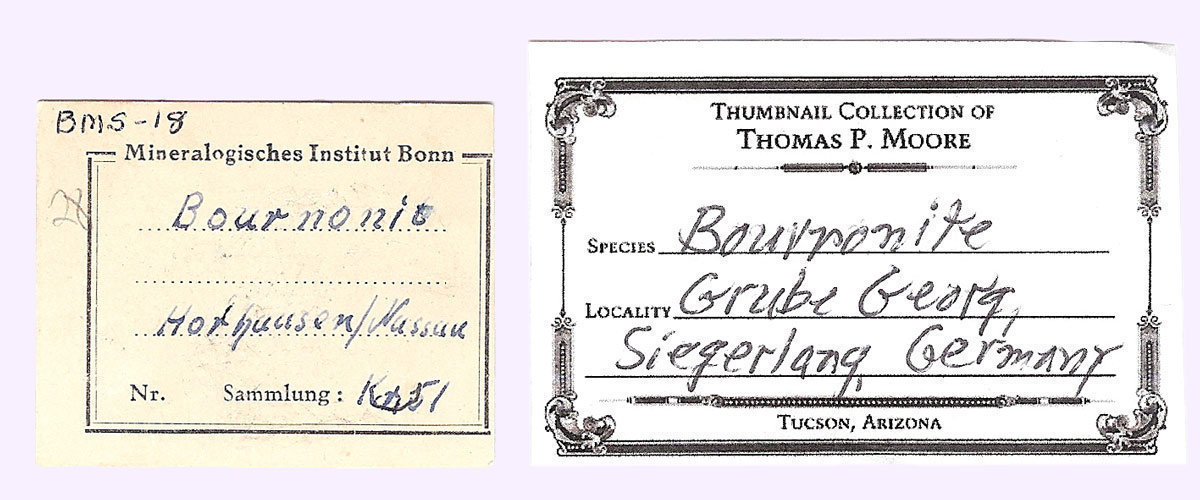 BMS-18
Mineralogisches Institut Bonn
Bournonit
Horhausen/Nassau
Nr. Sammlung:
THUMBNAIL COLLECTION OF
THOMAS P. MOORE
SPECIES Bournonite
LOCALITY Grube Georg,
Siegerland, Germany
TUCSON, ARIZONA